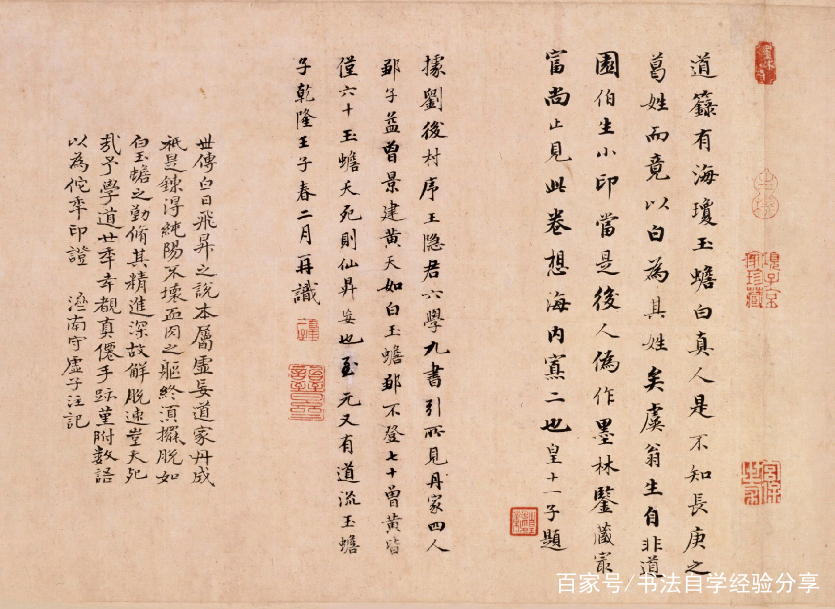 項子京家珍藏
宮保世家
道籙有海瓊玉蟾白真人是不知長庚之
葛姓而竟以白為其姓矣虞翁生自非道
園伯生小印當是後人偽作墨林鑒藏㝡
富尚止見此卷想海內寡二也皇十一子題
據劉後村序王隱君六學九書引所見丹家四人
鄒子益曾景建黃天如白玉蟾鄒不登七十曾黃皆
僅六十玉蟾夭死則仙昇妄也至元又有道流玉蟾
子乾隆壬子春二月再識
世傳白日飛昇之說本屬虛妄道家丹成
祇是鍊淂純陽不壞而肉之軀終須擺脫如
白玉蟾之勤脩其精進深故解脫速豈夭死
哉予學道廿年幸覩真僊手跡堇附數語
以為佗年印證 濟南守虛子注記
百家号/书法自学经验分享